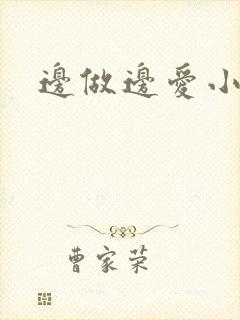 邊做邊愛小
曹家荣